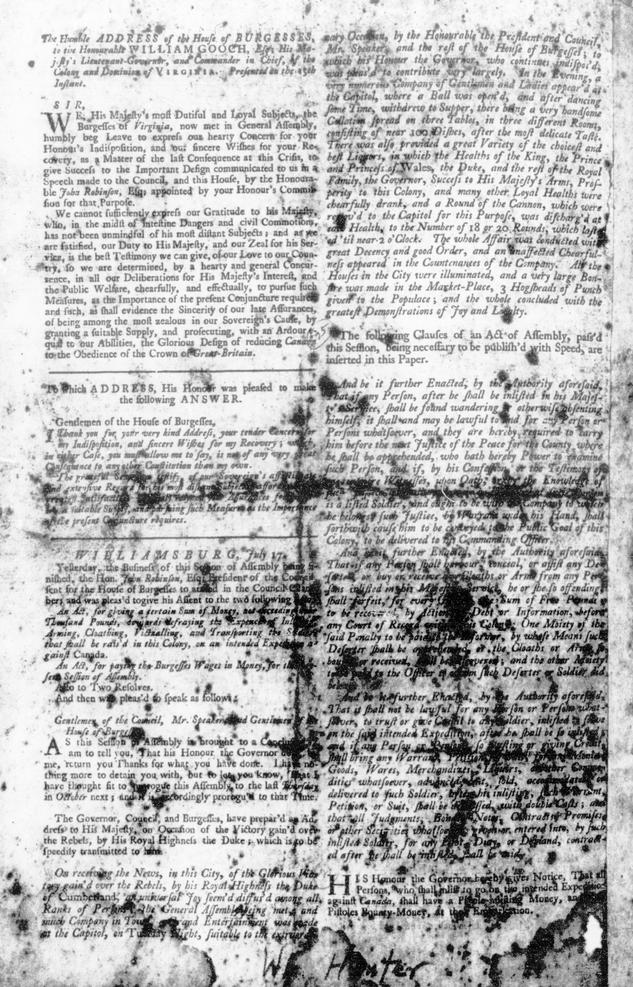 The Humble ADDRESS of the House of BURGESSES,
to the Honourable WILLIAM GOOCH, Esq; His Ma-
jesty's Lieutenant-Governor, and Commander in Chief, of the
Colony and Dominion of VIRGINIA. Presented on the 15th
Instant.
SIR,
WE, His Majesty's most Dutiful and Loyal Subjects, the
Burgesses of Virginia, now met in General Assembly,
humbly beg Leave to express our hearty Concern for your
Honour's Indisposition, and our sincere Wishes for your Re-
covery, as a Matter of the last Consequence at this Crisis, to
give Success to the Important Design communicated to us in a
Speech made to the Council, and this House, by the Honoura-
ble John Robinson, Esq; appointed by your Honour's Commis-
sion for that Purpose.
We cannot sufficiently express our Gratitude to his Majesty,
who, in the midst of Intestine Dangers and civil Commotion,
has not been unmindful of his most distant Subjects; and as we
are satisfied, our Duty to His Majesty, and our Zeal for his Ser-
vice, is the best Testimony we can give, of our Love to our Coun-
try, so we are determined, by a hearty and general Concur-
rence, in all our Deliberations for His Majesty's Interest, and
the Public Welfare, chearfully, and effectually, to pursue such
Measures, as the Importance of the present Conjuncture requires
and such, as shall evidence the Sincerity of our late Assurances,
of being among the most zealous in our Sovereign's Cause, by
granting a suitable Supply, and prosecuting, with an Ardour e-
qual to our Abilities, the Glorious Design of reducing Canada
to the Obedience of the Crown of Great-Britain.
To which ADDRESS, His Honour was pleased to make
the following ANSWER.
Gentlemen of the House of Burgesses,
I Thank you for your very kind Address, your tender Concern for
my Indisposition, and sincere Wishes for my Recovery; which,
in either Case, you must allow me to say, is not of any very great
Consequence to any other Constitution than my own.
The grateful Sense of our Sovereign's
a suitable Supply, and pursuing such Measures as the Importance
of the present Conjuncture requires.
WILLIAMSBURG, July 17.
Yesterday, the Business of this Session of Assembly being fi-
nished, the Hon. John Robinson, Esq; President of the Council
sent for the House of Burgesses to attend in the Council Cham-
ber; and was pleas'd to give his Assent to the two following
An Act, for giving a certain Sum of Money, not exceeding
Thousand Pounds, towards defraying the Expence of Inlisting,
Arming, Cloathing, Victualling, and Transporting the Soldiers
that shall be rais'd in this Colony, on an intended Expedition a-
gainst Canada.
An Act, for paying the Burgesses Wages in Money, for the
sent Session of Assembly.
Also to Two Resolves.
And then was pleas'd to speak as follows:
Gentlemen of the Council, Mr. Speaker, and Gentlemen of the
House of Burgesses,
AS this Session of Assembly is brought to a Conclusion, I
am to tell you, That his Honour the Governor
me, return you Thanks for what you have done. I have no-
thing more to detain you with, but to let you know, that I
have thought fit to prorogue this Assembly, to the last
in October next; and accordingly prorogu'd to that Time.
The Governor, Council, and Burgesses, have prepar'd an Ad-
dress to His Majesty, on Occasion of the Victory gain'd over
the Rebels, by His Royal Highness the Duke; which is to be
speedily transmitted to him.
On receiving the News, in this City, of the Glorious Vic-
tory gain'd over the Rebels, by his Royal Highness the Duke
of Cumberland, an universal Joy seem'd diffus'd among all
Ranks of Persons. The General Assembly being met, and
much Company in Town, a Grand Entertainment was made
at the Capitol, on Tuesday Night, suitable to the extraordi-
nary Occasion, by the Honourable the President and Council,
Mr. Speaker, and the rest of the House of Burgesses; to
which his Honour the Governor, who continues indispos'd,
was pleas'd to contribute very largely. In the Evening, a
very numerous Company of Gentlemen and Ladies appear'd at
the Capitol, where a Ball was open'd, and after dancing
some Time, withdrew to Supper, there being a very handsome
Collation spread on three Tables, in three different Rooms,
consisting of near 100 Dishes, after the most delicate Taste.
There was also provided a great Variety of the choicest and
best Liquors, in which the Healths of the King, the Prince
and Princess of Wales, the Duke, and the rest of the Royal
Family, the Governor, Success to His Majesty's Arms, Pros-
perity to this Colony, and many other Loyal Healths were
chearfully drank, and a Round of the Cannon, which were
remov'd to the Capitol for this Purpose, was discharg'd at
each Health, to the Number of 18 or 20 Rounds, which last-
ed 'til near 2 o'Clock. The whole Affair was conducted with
great Decency and good Order, and an unaffected Chearful-
ness appeared in the Countenances of the Company. All the
Houses in the City were illuminated, and a very large Bon-
fire was made in the Market-Place, 3 Hogsheads of Punch
given to the Populace; and the whole concluded with the
greatest Demonstrations of Joy and Loyalty.
The following Clauses of an Act of Assembly, pass'd
this Session, being necessary to be publish'd with Speed, are
inserted in this Paper.
And be it further Enacted, by the Authority aforesaid,
That if any Person, after he shall be inlisted in his Majes-
ty's Service, shall be found wandering or otherwise absenting
himself, it shall and may be lawful to and for any Person or
Persons whatsoever, and they are hereby required to carry
him before the next Justice of the Peace for the County where
he shall be apprehended, who hath hereby Power to examine
such Person, and if, by his Confession, or the Testimony of
Witnesses, upon Oath, or the Knowledge of
is a listed Soldier, and ought to be with the Company to which
he belongs, such Justice, by Warrant under his Hand, shall
forthwith cause him to be conveyed to the Public Goal of this
Colony, to be delivered to his Commanding Officer.
And be it further Enacted, by the Authority aforesaid,
That if any Person shall harbour, conceal, or assist any De-
serter, or buy or receive Cloaths or Arms from any Per-
sons inlisted in his Majesty's Service, he or she so offending
shall forfeit, for every Sum of Five Pounds
to be recover'd by Action of Debt or Information, before
any Court of Record within this Colony. One Moiety of the
said Penalty to be paid to the Informer, by whose Means such
Deserter shall be apprehended, or the Cloaths or Arms so
bought or received, shall be discovered; and the other Moiety
to be paid to the Officer to whom such Deserter or Soldier did
belong.
And be it further Enacted, by the Authority aforesaid,
That it shall not be lawful for any Person or Persons what-
soever, to trust or give Credit to any Soldier, inlisted to serve
on the said intended Expedition, after he shall be so inlisted;
and if any Person or Persons, so trusting or giving Credit,
shall bring any Warrant,
Goods, Wares, Merchandizes, Liquors,
dities whatsoever, advanced, lent, sold,
delivered to such Soldier, after his inlisting, such Warrant,
Petition, or Suit, shall be dismissed, with double Costs; and
that all Judgments, Bonds, Notes, Contracts, Promises
or other Securities whatsoever, given or entered into, by such
inlisted Soldier, for any Debt, Duty, or Demand, contract-
ed after he shall be inlisted, shall be void.
HIS Honour the Governor hereby gives Notice, That all
Persons, who shall inlist to go on the intended Expedition
against Canada, shall have a Pistole inlisting Money, and
Pistoles Bounty-Money, at their Embarkation.
Wm Hunter